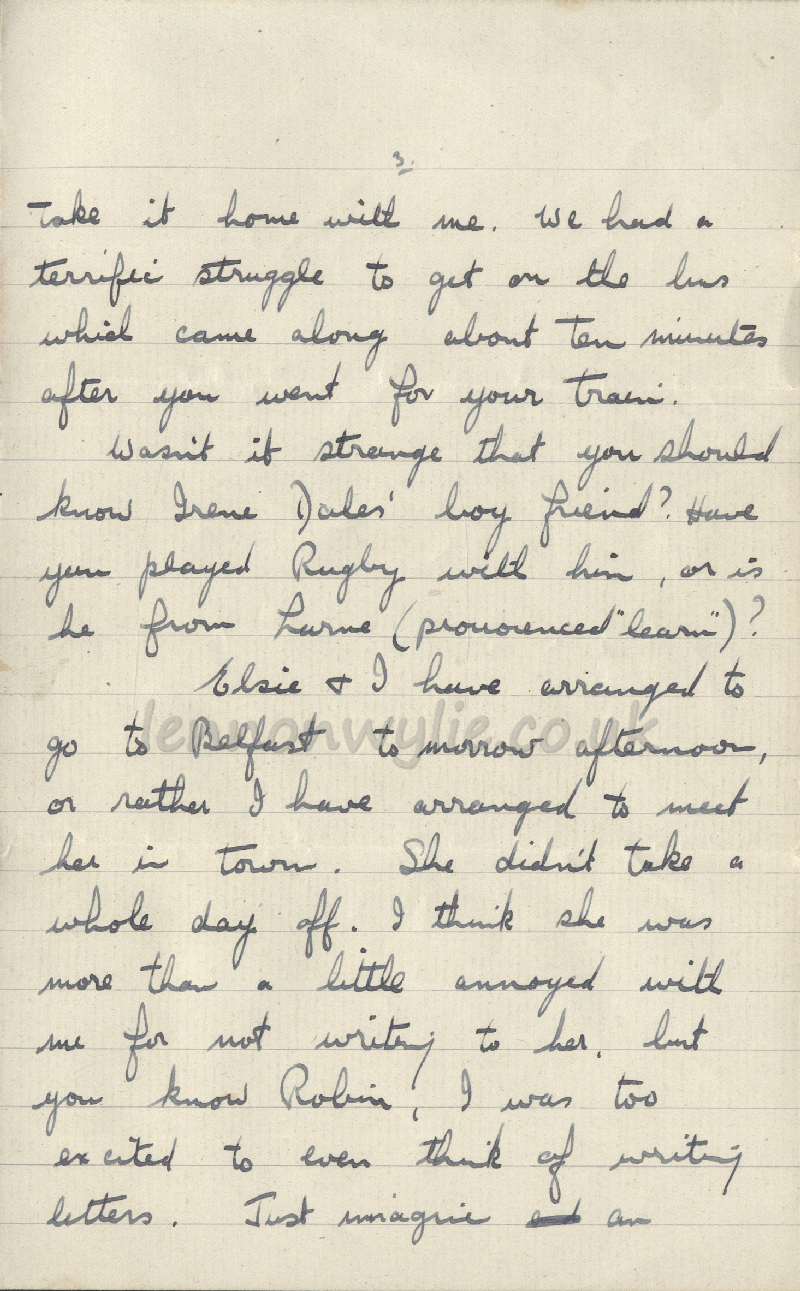 3.
take it home with me. We had a
terrific struggle to get on the bus
which came along about ten minutes
after you went for your train.
Wasn't it strange that you should
know Irene Dales' boy friend? Have
you played Rugby with him, or is
he from Larne (pronounced "learn")?
Elsie & I have arranged to
go to Belfast to morrow afternoon,
lennonwylie.co.uk
or rather I have arranged to meet
her in town. She didn't take a
whole day off. I think she was
more than a little annoyed with
me for not writing to her, but
you know Robin, I was too
excited to even think of writing
letters. Just imagine and an